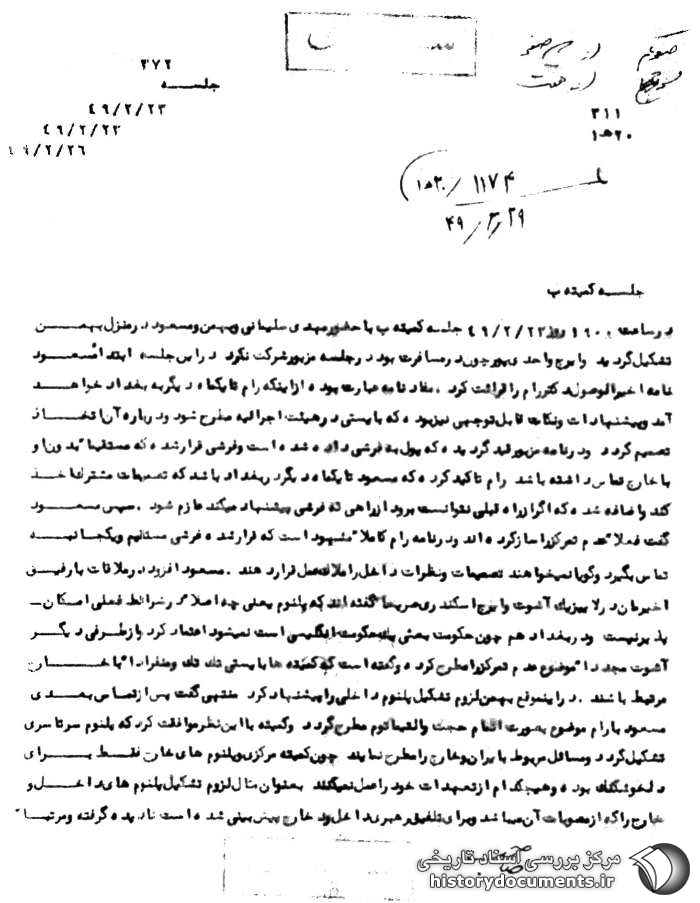 از
۳۷۲
جلسه
۴۹/۲/۲۳
۴۹/۲/۲۳
۴۹/۲/۲۶
۳۱۱
۲۰ه‍۱
۱۱۷۴ / ۲۰ه‍۱
۴۹/۳/۲۹
جلسه کمیته ب
درساعت ۱۹۰۰ روز ۴۹/۲/۲۳ جلسه کمیته ب با حضور مهدی سلیمانی و بهمن و مسعود در منزل بهمن
تشکیل گردید و ایرج واحدی پور چون در مسافرت بود در جلسه مزبور شرکت نکرد در این جلسه ابتدا مسعود
نامه اخیرالوصول دکتر رام را قرائت کرد ، مفاد نامه عبارت بوده از اینکه رام تا یکماه دیگر به بغداد خواهد
آمد و پیشنهادات و نکات قابل توجهی نیز بوده که بایستی در هیئت اجرائیه مطرح شود و درباره آن اتخاذ
تصمیم گردد و در نامه مزبور قید گردیده که پول به فرشی داده شده است و فرشی قرار شده که مستقیما" بدون و
با خارج تماس داشته باشد رام تاکید کرده که مسعود تا یکماه دیگر در بغداد باشد که تصمیمات مشترک اخذ
کند و اضافه شده که اگر از راه قبلی نتوانست برود از راهی که فرشی پیشنهاد میکند عازم شود . سپس مسعود
گفت فعلا" عدم تمرکز را ساز کرده اند و در نامه رام کاملا" مشهود است که قرار شده فرشی مستقیم و یکجانبه
تماس بگیرد و گویا نمیخواهند تصمیمات و نظرات داخل را ملاک عمل قرار دهند . مسعود افزود در ملاقات با رفیق
اخیرمان در لایپزیک آشوت و ایرج اسکندری صریحا" گفته اند که پلنوم یعنی چه اصلا" در شرائط فعلی امکان ـ
پذیر نیست و در بغداد هم چون حکومت بعثی یک حکومت انگلیسی است نمیشود اعتماد کرد و از طرفی دیگر
آشوت مجددا" موضوع عدم تمرکز را مطرح کرده و گفته است که کمیته ها بایستی تک تک و منفردا" با خارج
مرتبط باشند . در اینموقع بهمن لزوم تشکیل پلنوم داخلی را پیشنهاد کرد منتهی گفت پس از تماس بعدی
مسعود با رام موضوع بصورت اتمام حجت و التیماتوم مطرح گردد و کمیته با این نظر موافقت کرد که پلنوم سرتاسری
تشکیل گردد و مسائل مربوط با ایران و خارج را مطرح نمایند چون کمیته مرکزی و پلنوم های خارج فقط برای
دلخوشکنک بوده و هیچکدام از تعهدات خود را عمل نمیکنند بعنوان مثال لزوم تشکیل پلنوم های داخل و
خارج را که از مصوبات آن میباشد و برای تلفیق رهبری داخل و خارج پیش بینی شده است نادیده گرفته و مرتبا"
مرکز بررسی اسناد تاریخی
historydocuments.ir